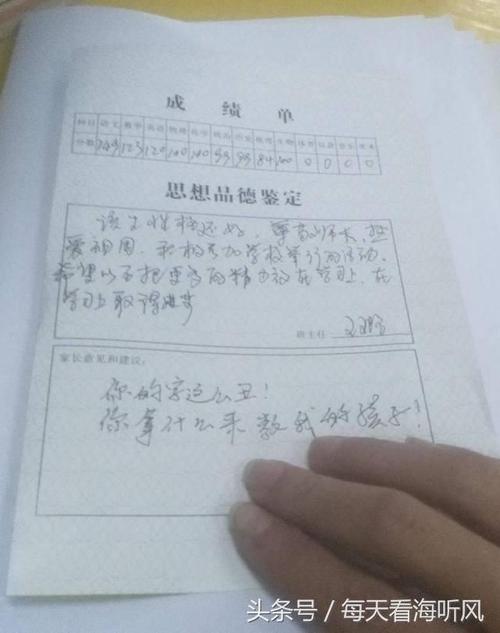 成绩单
科目 语文 数学 英语 物理 化学 政治 历史 地理 生物 体育 音乐 美术
分数 123 120 100 100 99 99 84 100 0 0 0 0
思想品德鉴定
该生性格还好，尊敬师长，热
爱祖国，积极参加学校举行的活动。
希望以后把更多的精力放在学习上，在
学习上取得进步
班主任
家长意见和建议：
你的字这么丑！
你拿什么来教我的孩子！
头条号 / 每天看海听风